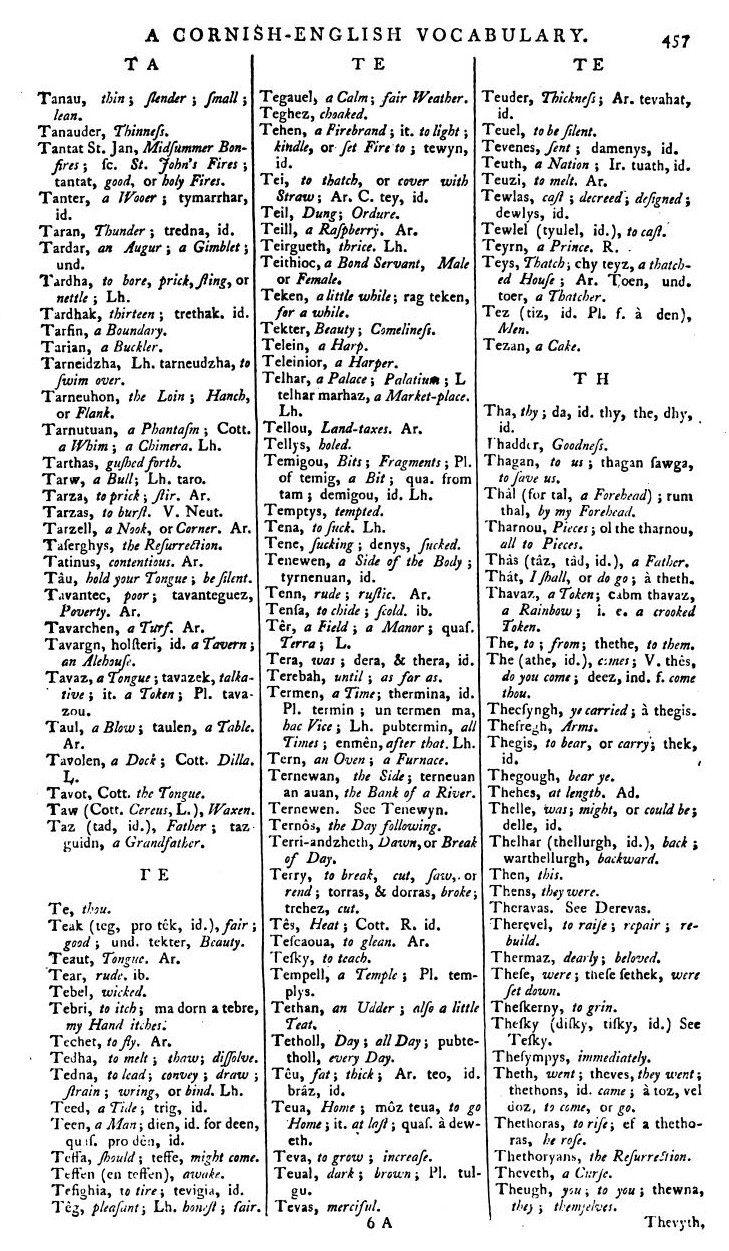 A CORNISH-ENGLISH VOCABULARY.
457
T A
Tanau, thin; ſlender; ſmall;
lean.
Tanauder, Thinneſs.
Tantat St. Jan, Midſummer Bon-
fires; ſc. St. John's Fires;
tantat, good, or holy Fires.
Tanter, a Wooer; tymarrhar,
id.
Taran, Thunder; tredna, id.
Tardar, an Augur; a Gimblet;
und.
Tardha, to bore, prick, ſting, or
nettle; Lh.
Tardhak, thirteen; trethak. id.
Tarfin, a Boundary.
Tarian, a Buckler.
Tarneidzha, Lh. tarneudzha, to
ſwim over.
Tarneuhon, the Loin; Hanch,
or Flank.
Tarnutuan, a Phantaſm; Cott.
a Whim; a Chimera. Lh.
Tarthas, guſhed forth.
Tarw, a Bull; Lh. taro.
Tarza, to prick; ſtir. Ar.
Tarzas, to burſt. V. Neut.
Tarzell, a Nook, or Corner. Ar.
Taſerghys, the Reſurrection.
Tatinus, contentious. Ar.
Tâu, hold your Tongue; be ſilent.
Tavantec, poor; tavanteguez,
Poverty. Ar.
Tavarchen, a Turf. Ar.
Tavargn, holſteri, id. a Tavern;
an Alehouſe.
Tavaz, a Tongue; tavazek, talka-
tive; it. a Token; Pl. tava-
zou.
Taul, a Blow; taulen, a Table.
Ar.
Tavolen, a Dock; Cott. Dilla.
L.
Tavot, Cott. the Tongue.
Taw (Cott. Cereus, L.), Waxen.
Taz (tad, id.), Father; taz
guidn, a Grandfather.
T E
Te, thou.
Teak (teg, pro têk, id.), fair;
good; und. tekter, Beauty.
Teaut, Tongue. Ar.
Tear, rude. ib.
Tebel, wicked.
Tebri, to itch; ma dorn a tebre,
my Hand itches.
Techet, to fly. Ar.
Tedha, to melt; thaw; diſſolve.
Tedna, to lead; convey; draw;
ſtrain; wring, or bind. Lh.
Teed, a Tide; trig, id.
Teen, a Man; dien, id. for deen,
quaſ. pro dên, id.
Teffa, ſhould; teffe, might come.
Teffen (en teffen), awake.
Tefighia, to tire; tevigia, id.
Têg, pleaſant; Lh. honeſt; fair.
T E
Tegauel, a Calm; fair Weather.
Teghez, choaked.
Tehen, a Firebrand; it. to light;
kindle, or ſet Fire to; tewyn,
id.
Tei, to thatch, or cover with
Straw; Ar. C. tey, id.
Teil, Dung; Ordure.
Teill, a Raſpberry. Ar.
Teirgueth, thrice. Lh.
Teithioc, a Bond Servant, Male
or Female.
Teken, a little while; rag teken,
for a while.
Tekter, Beauty; Comelineſs.
Telein, a Harp.
Teleinior, a Harper.
Telhar, a Palace; Palatium; L
telhar marhaz, a Market-place.
Lh.
Tellou, Land-taxes. Ar.
Tellys, holed.
Temigou, Bits; Fragments; Pl.
of temig, a Bit; qua. from
tam; demigou, id. Lh.
Temptys, tempted.
Tena, to ſuck. Lh.
Tene, ſucking; denys, ſucked.
Tenewen, a Side of the Body;
tyrnenuan, id.
Tenn, rude; ruſtic. Ar.
Tenſa, to chide; ſcold. ib.
Têr, a Field; a Manor; quaſ.
Terra; L.
Tera, was; dera, & thera, id.
Terebah, until; as far as.
Termen, a Time; thermina, id.
Pl. termin; un termen ma,
hac Vice; Lh. pubtermin, all
Times; enmên, after that. Lh.
Tern, an Oven; a Furnace.
Ternewan, the Side; terneuan
an auan, the Bank of a River.
Ternewen. See Tenewyn.
Ternôs, the Day following.
Terri-andzheth, Dawn, or Break
of Day.
Terry, to break, cut, ſaw, or
rend; torras, & dorras, broke;
trehez, cut.
Tês, Heat; Cott. R. id.
Teſcaoua, to glean. Ar.
Teſky, to teach.
Tempell, a Temple; Pl. tem-
plys.
Tethan, an Udder; alſo a little
Teat.
Tetholl, Day; all Day; pubte-
tholl, every Day.
Têu, fat; thick; Ar. teo, id.
brâz, id.
Teua, Home; môz teua, to go
Home; it. at laſt; quaſ. à dew-
eth.
Teva, to grow; increaſe.
Teual, dark; brown; Pl. tul-
gu.
Tevas, merciful.
T E
Teuder, Thickneſs; Ar. tevahat,
id.
Teuel, to be ſilent.
Tevenes, ſent; damenys, id.
Teuth, a Nation; Ir. tuath, id.
Teuzi, to melt. Ar.
Tewlas, caſt; decreed; deſigned;
dewlys, id.
Tewlel (tyulel, id.), to caſt.
Teyrn, a Prince. R.
Teys, Thatch; chy teyz, a thatch-
ed Houſe; Ar. Toen, und.
toer, a Thatcher.
Tez (tiz, id. Pl. f. à den),
Men.
Tezan, a Cake.
T H
Tha, thy; da, id. thy, the, dhy,
id.
Thadder, Goodneſs.
Thagan, to us; thagan ſawga,
to ſave us.
Thâl (for tal, a Forehead); rum
thal, by my Forehead.
Tharnou, Pieces; ol the tharnou,
all to Pieces.
Thâs (tâz, tâd, id.), a Father.
Thât, I ſhall, or do go; à theth.
Thavaz, a Token; cabm thavaz,
a Rainbow; i. e. a crooked
Token.
The, to; from; thethe, to them.
The (athe, id.), comes; V. thês,
do you come; deez, ind. f. come
thou.
Thecſyngh, ye carried; à thegis.
Thefregh, Arms.
Thegis, to bear, or carry; thek,
id.
Thegough, bear ye.
Thehes, at length. Ad.
Thelle, was; might, or could be;
delle, id.
Thelhar (thellurgh, id.), back;
warthellurgh, backward.
Then, this.
Thens, they were.
Theravas. See Derevas.
Therevel, to raiſe; repair; re-
build.
Thermaz, dearly; beloved.
Theſe, were; theſe ſethek, were
ſet down.
Theſkerny, to grin.
Theſky (diſky, tiſky, id.) See
Teſky.
Theſympys, immediately.
Theth, went; theves, they went;
thethons, id. came; à toz, vel
doz, to come, or go.
Thethoras, to riſe; ef a thetho-
ras, he roſe.
Thethoryans, the Reſurrection.
Theveth, a Curſe.
Theugh, you; to you; thewna,
they; themſelves.
6 A
Thevyth,